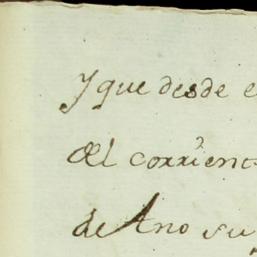 y que desde e
del corrient
de Ano su